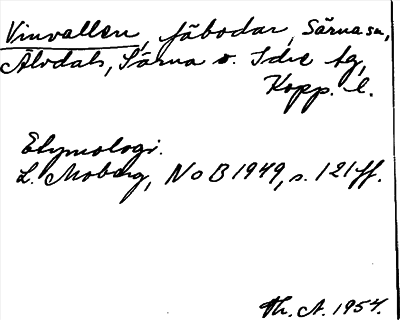 Vinvallen, fäbodar, Särna sn,
Älvdals, Särna o. Idre tg,
Kopp. l.
Etymologi.
L. Moberg, NoB 1949, s. 121 ff.
Th. A. 1954.